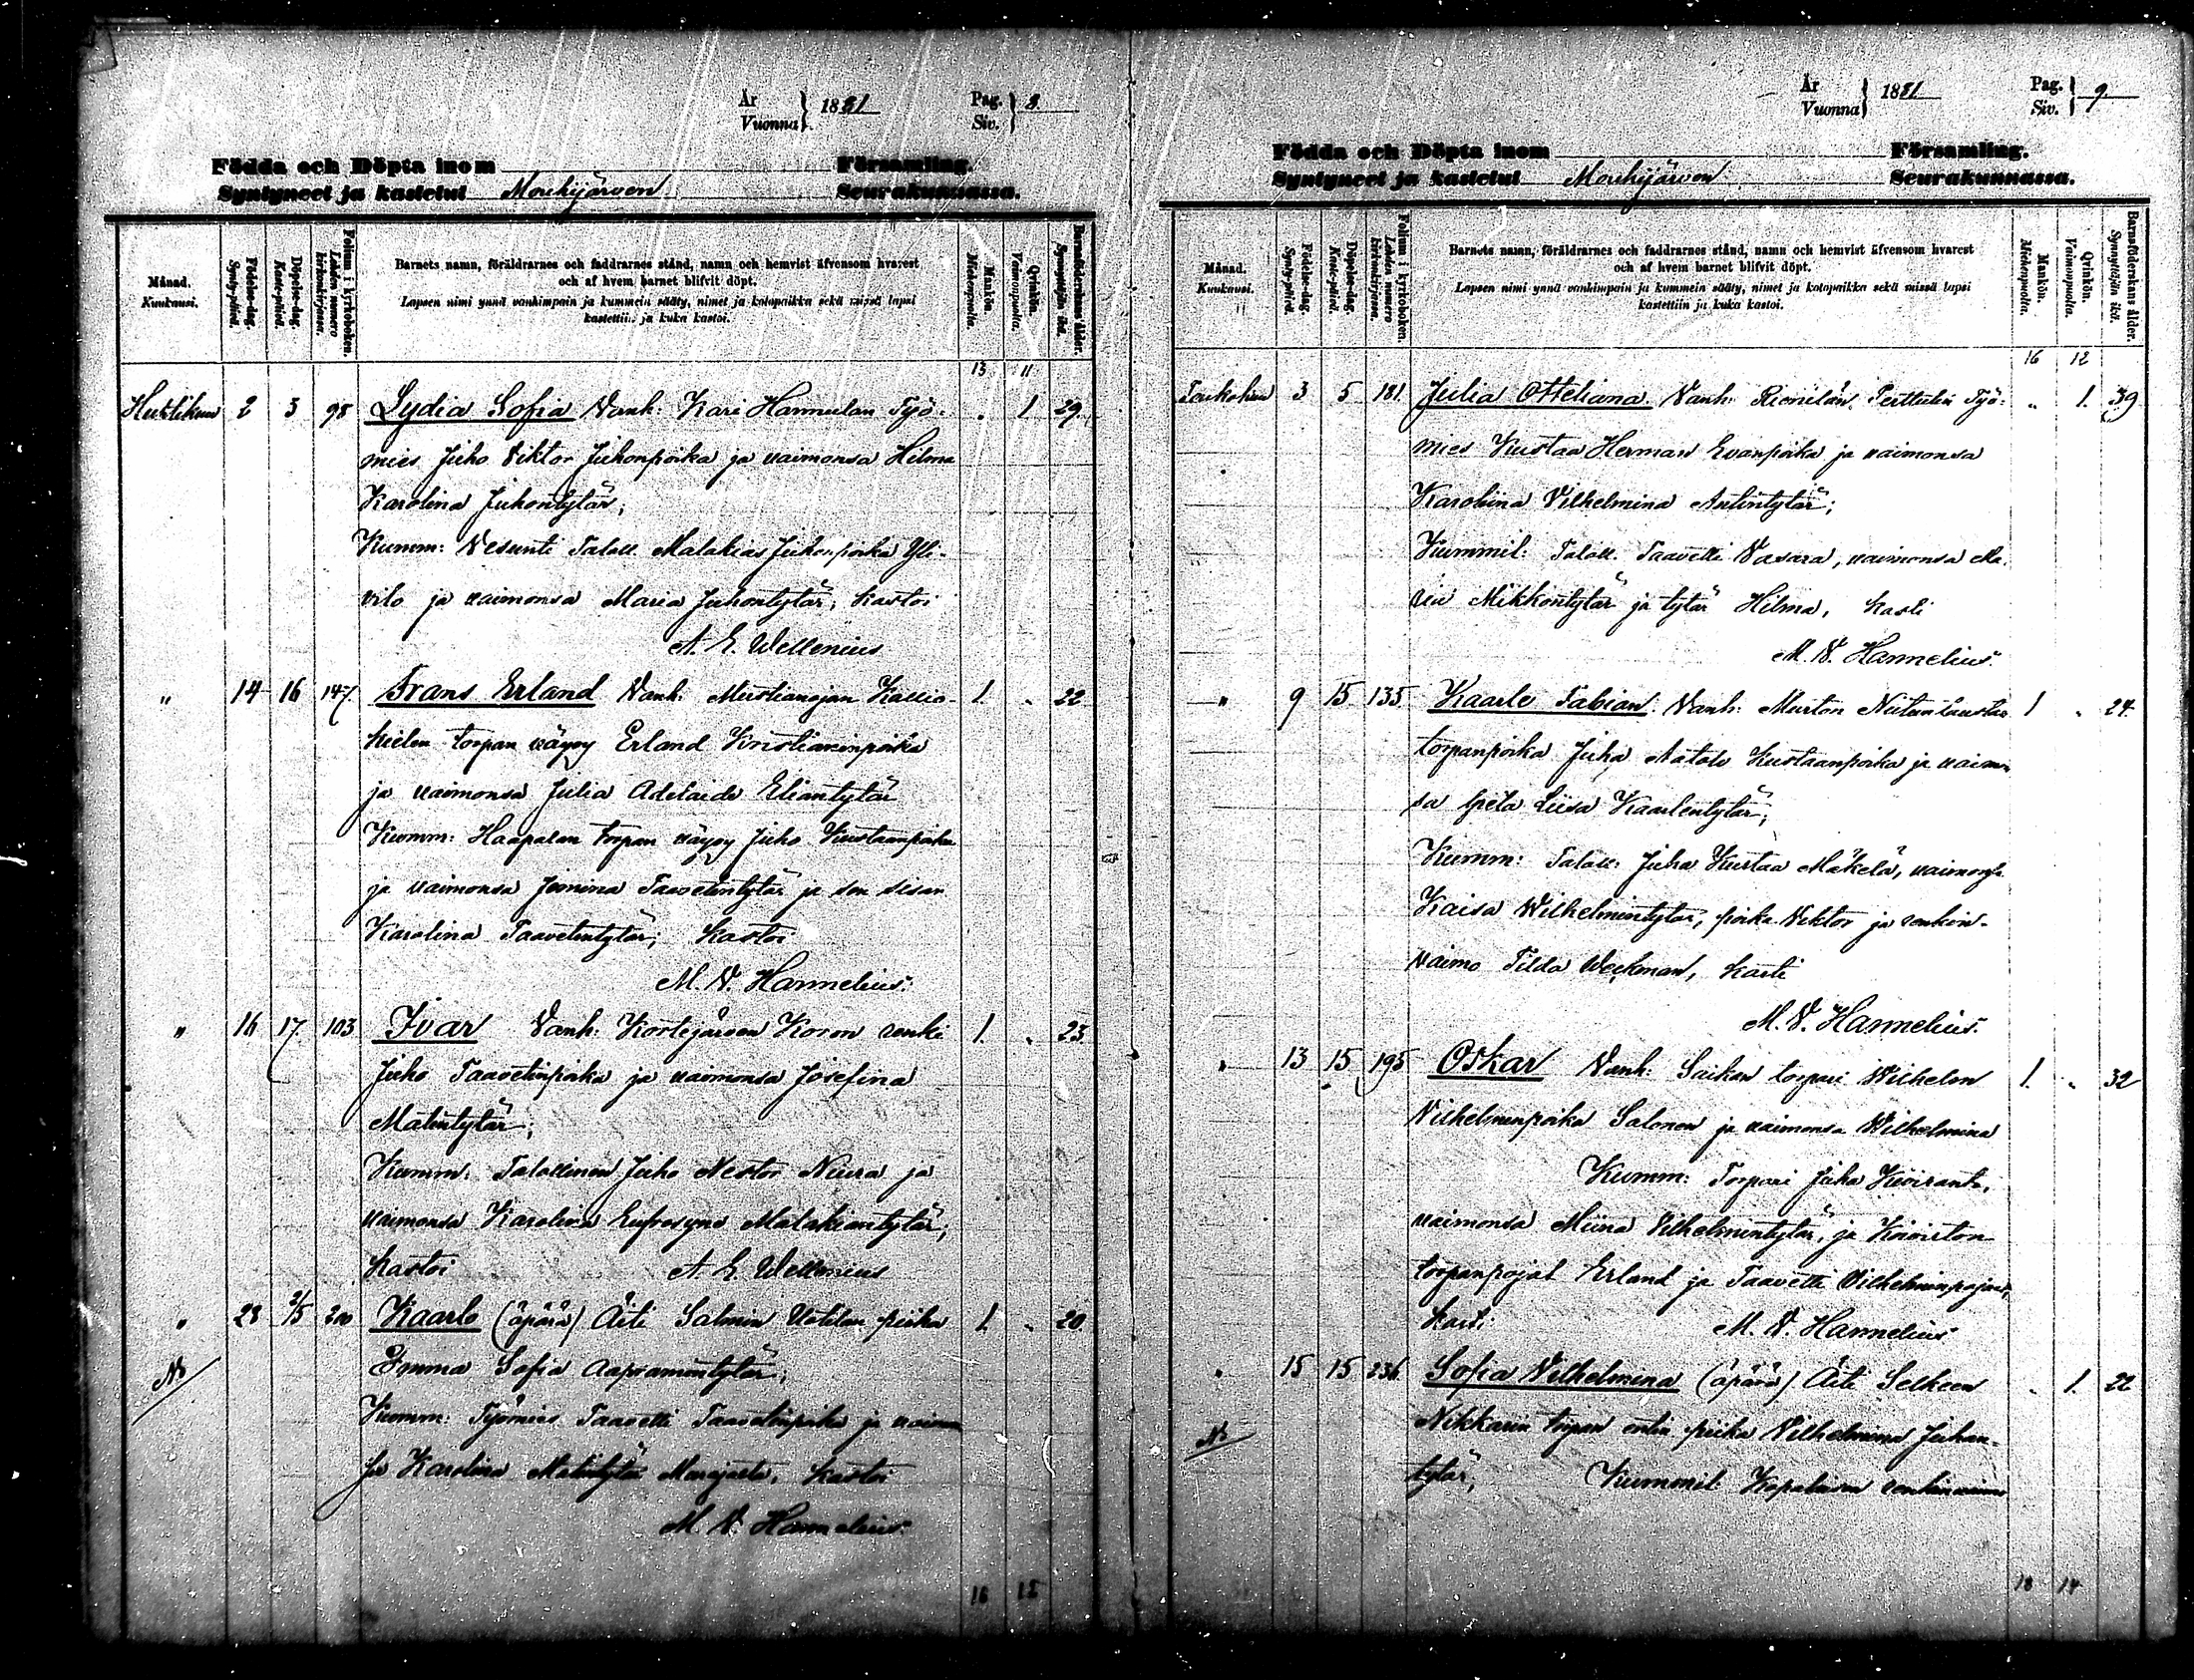 År
Vuonna } 1881 Pag.
Siv. } 8.
Födda och Döpta inom Församling.
Syntyneet ja kastetut Mouhijärven Seurakunnassa.
Månad.
Kuukausi.
Födelse-dag.
Synty-päivä.
Döpelse-dag.
Kaste-päivä.
Folium i kyrkoboken.
Lehden numero kirkonkirjassa.
Barnets namn, föräldrarnes och faddrarnes stånd, namn och hemvist äfvensom hvarest
och af hvem barnet blifvit döpt.
Lapsen nimi ynnä vanhimpain ja kummein sääty, nimet ja kotopaikka sekä missä lapsi
kastettiin ja kuka kastoi.
Mankön.
Miehenpuolia.
Qvinkön.
Vaimonpuolia.
Barnaföderskans ålder.
Synnyttäjän ikä.
13 11
Huhtikuu 2 3 98 Lydia Sofia Vanh: Kari Hannulan Työ- „ 1 29
mies Juho Viktor Juhonpoika ja vaimonsa Hilma
Karolina Juhontytär;
Kumm: Vesunti Talall. Malakias Juhonpoika Yli-
vilo ja vaimonsa Maria Juhontytär; kastoi
A. E. Wellenius
„ 14 16 147 Frans Erland Vanh: Mustianojan Kallio- 1. „ 22
kielen torpan vävyy Erland Kristianinpoika
ja vaimonsa Julia Adelaide Eliantytär
Kumm: Haapalan torpan vävyy Juho Kustaanpoika
ja vaimonsa Jemina Taavetintytär ja sen sisar
Karolina Taavetintytär; kastoi
M. V. Hannelius.
„ 16 17 103 Ivar Vanh: Kortejärven Koron renki 1. „ 23
Juho Taavetinpoika ja vaimonsa Josefina
Matintytär;
Kumm: Talollinen Juho Nestor Niura ja
vaimonsa Karolina Eufrosyne Malakiantytär;
kastoi A. E. Wellenius
„ 28 2/5 200 Kaarlo (äpärä) Äiti Salmin Uotilan piika 1. „ 20.
Emma Sofia Aapramintytär;
Kumm: Työmies Taavetti Taavetinpoika ja vaimon
sa Karolina Matintytär kastoi
M. V. Hannelius.
16 15
År
Vuonna } 1881 Pag.
Siv. } 9.
Födda och Döpta inom Församling.
Syntyneet ja kastetut Mouhijärven Seurakunnassa.
Månad.
Kuukausi.
Födelse-dag.
Synty-päivä.
Döpelse-dag.
Kaste-päivä.
Folium i kyrkoboken.
Lehden numero kirkonkirjassa.
Barnets namn, föräldrarnes och faddrarnes stånd, namn och hemvist äfvensom hvarest
och af hvem barnet blifvit döpt.
Lapsen nimi ynnä vanhimpain ja kummein sääty, nimet ja kotopaikka sekä missä lapsi
kastettiin ja kuka kastoi.
Mankön.
Miehenpuolia.
Qvinkön.
Vaimonpuolia.
Barnaföderskans ålder.
Synnyttäjän ikä.
16 12
Toukokuu 3 5 181. Julia Otteliana. Vanh: Pertulin Työ- „ 1. 39
mies Kustaa Herman Evanpoika ja vaimonsa
Karoliina Vilhelmina Antintytär;
Kummit: Talall. Taavetti Vasara, vaimonsa Ma-
ria Mikkontytär ja tytär Hilma, kasti
M. V. Hannelius.
„ 9 15 135 Kaarle Fabian. Vanh: Murton 1 „ 24.
torpanpoika Juha Natale Kustaanpoika ja vaimon
sa Greta Liisa Kaarlentytär;
Kumm: Talall: Juha Kustaa Mäkelä, vaimonsa
Kaisa Wilhelmintytär, poika Viktor ja renkin-
vaimo Tilda Weckman, kasti
M. V. Hannelius.
„ 13 15 195 Oskar Vanh: Saikan torpari Wilhelm 1. „ 32
Vilhelminpoika Salonen ja vaimonsa Wilhelmina
Kumm: Torpari Juha Kivirant.,
vaimonsa Miina Vilhelmintytär, ja Koiviston
torpanpojat Erland ja Taavetti Vilhelminpojat,
kasti M. V. Hannelius
„ 15 15 236 Sofia Vilhelmina (äpärä) Äiti Selkeen „ 1. 22
Nikkarin torpan entin. piika Vilhelmina Juhan-
tytär; Kummit: renkinvaimo
18 14